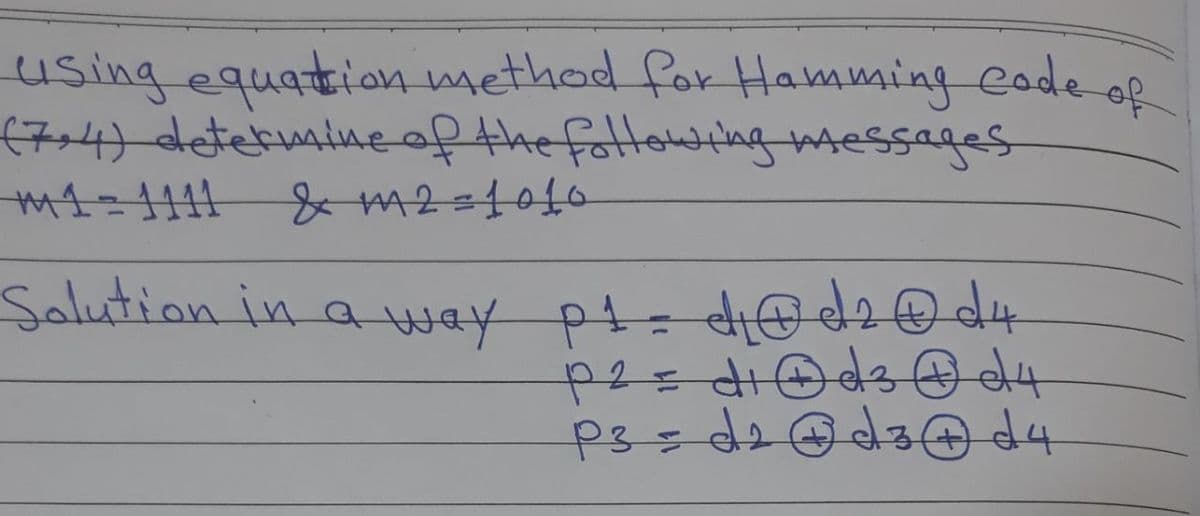 using equation method for Hamming code of
(7,4) determine of the following messages
m1 = 1111 & m2 = 1010
Solution in a way p1 = d1 ⊕ d2 ⊕ d4
p2 = d1 ⊕ d3 ⊕ d4
p3 = d2 ⊕ d3 ⊕ d4